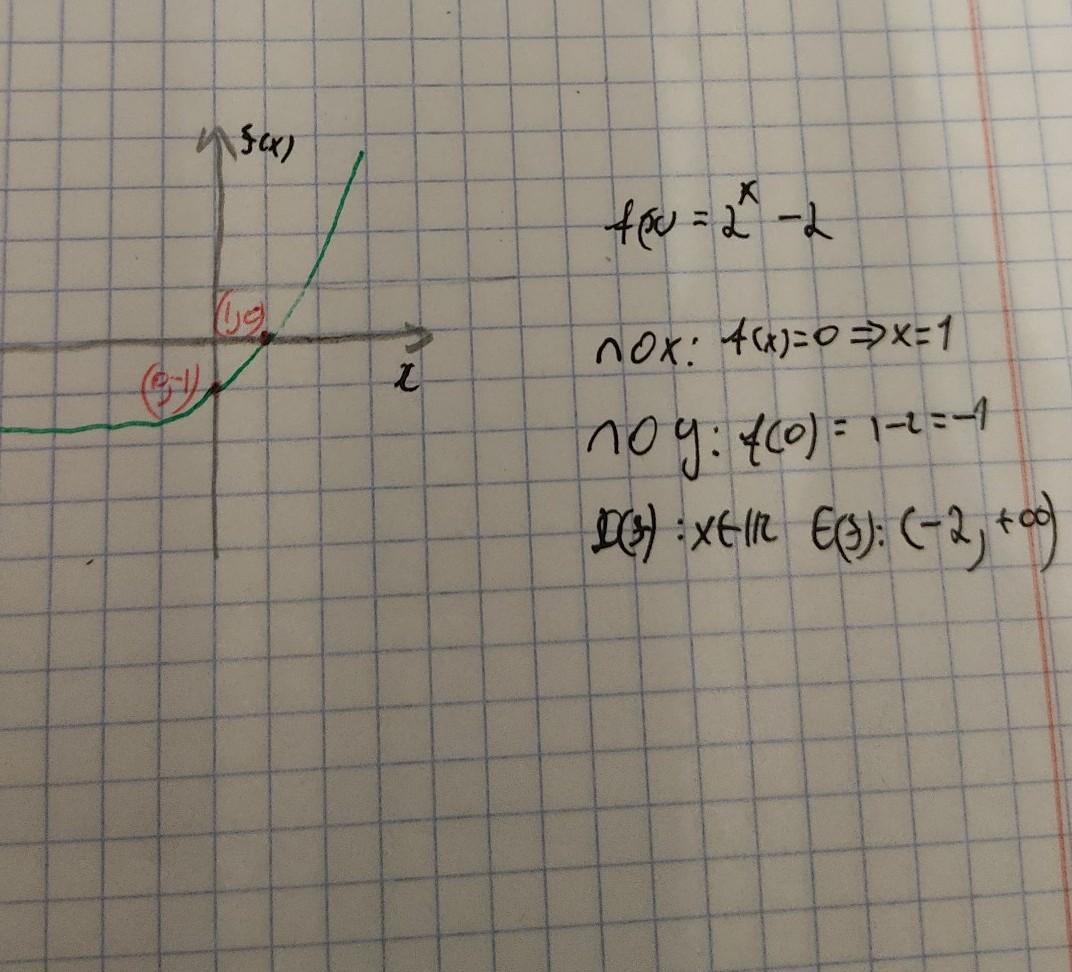 f(x)
(1,0)
(0,-1)
x
f(x) = 2^x - 2
∩Ox: f(x)=0 ⇒ x=1
∩Oy: f(0) = 1-2 = -1
D(f): x∈ℝ E(f): (-2, +∞)